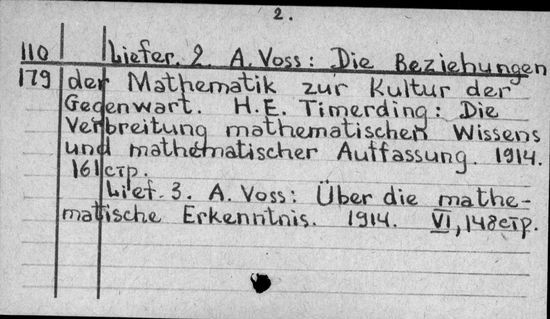 2.
110 Liefer. 2. A. Voss: Die Beziehungen
179 der Mathematik zur Kultur der
Gegenwart. H.E. Timerding: Die
Verbreitung mathematischen Wissens
und mathematischer Auffassung. 1914.
161 стр.
Lief. 3. A. Voss: Über die mathe-
matische Erkenntnis. 1914. VI, 148 стр.